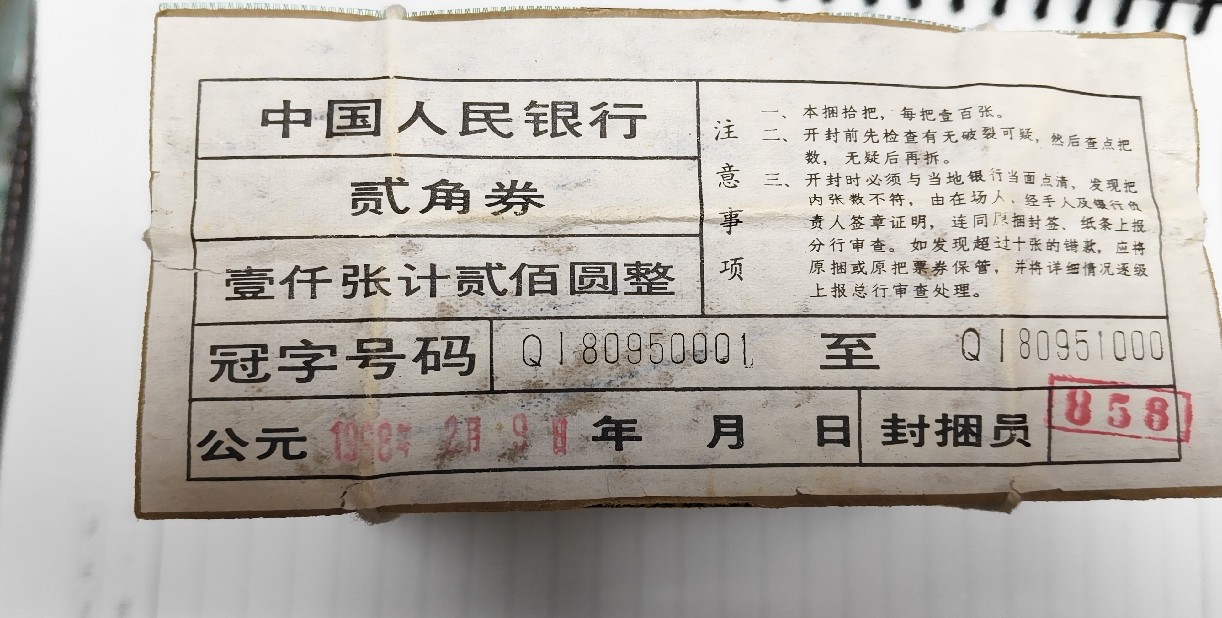 中国人民银行
贰角券
壹仟张计贰佰圆整
注意事项
一、本捆拾把，每把壹百张。
二、开封前先检查有无破裂可疑，然后查点把
数，无疑后再拆。
三、开封时必须与当地银行当面点清，发现把
内张数不符，由在场人、经手人及银行负
责人签章证明，连同原捆封签、纸条上报
分行审查。如发现超过十张的错款，应将
原捆或原把票券保管，并将详细情况逐级
上报总行审查处理。
冠字号码 QI80950001 至 QI80951000
公元 1968年 2月 9日 年 月 日 封捆员 858